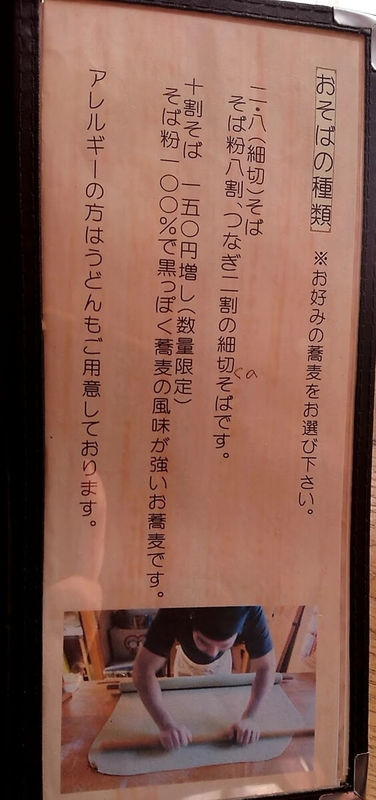 おそばの種類 ※お好みの蕎麦をお選び下さい。
二・八(細切)そば
そば粉八割、つなぎ二割の細切そばです。
十割そば 一五〇円増し(数量限定)
そば粉一〇〇%で黒っぽく蕎麦の風味が強いお蕎麦です。
アレルギーの方はうどんもご用意しております。